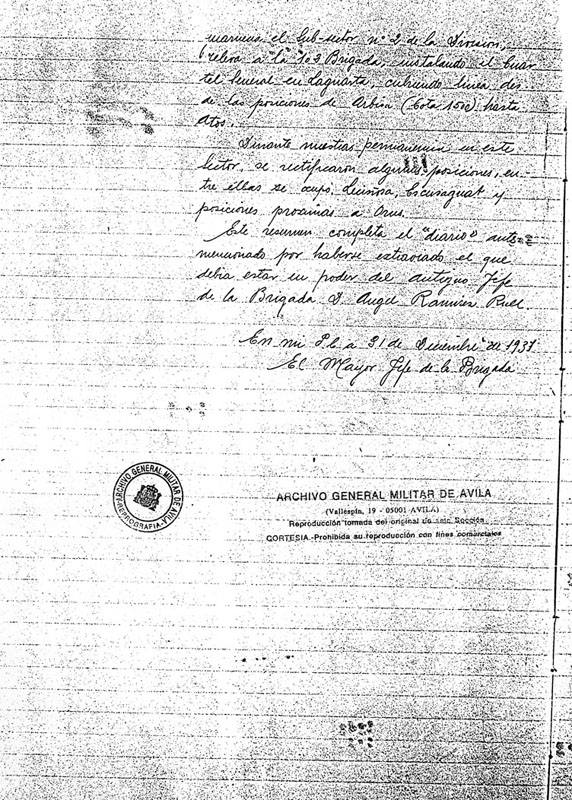 el Sub-sector nº 2 de la Division,
releva a la 103 Brigada, instalando el Cuar
tel General en Laguarta, cubriendo linea des
de las posiciones de Arbisa (Cota 1500) hasta
Atos.
Durante nuestras permanencia en este
sector, se rectificaron algunas posiciones, en
tre ellas se ocupó, Escusaguat y
posiciones proximas a Orus.
Este resumen completa el "diario" ante=
mencionado por haberse extraviado el que
debia estar en poder del antiguo Jefe
de la Brigada D. Angel Ramirez Rull.
En mi P.C. a 31 de Diciembre de 1937
El Mayor Jefe de la Brigada
ARCHIVO GENERAL MILITAR DE AVILA
REPROGRAFIA
ARCHIVO GENERAL MILITAR DE AVILA
(Vallespin, 19 - 05001 AVILA)
Reproducción tomada del original de esta Sección
CORTESIA.-Prohibida su reproducción con fines comerciales